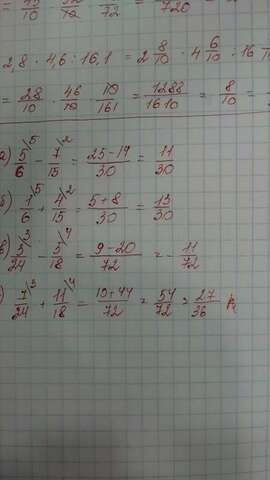 2,8 · 4,6 : 16,1 = 2 8/10 · 4 6/10 : 16
= 28/10 · 46/10 · 10/161 = 1288/1610 = 8/10 =
5/6 \5 - 7/15 \2 = 25-14/30 = 11/30
б) 1/6 \5 + 4/15 \2 = 5+8/30 = 13/30
в) 3/24 \3 - 5/18 \4 = 9-20/72 = - 11/72
7/24 \3 + 11/18 \4 = 10+44/72 = 54/72 = 27/36